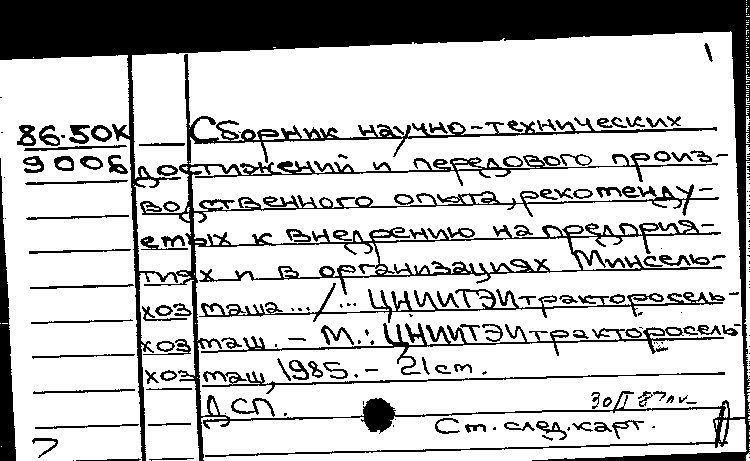 1
86.50К Сборник научно-технических
9006 достижений и передового произ-
водственного опыта, рекоменду-
емых к внедрению на предприя-
тиях и в организациях Минсель-
хозмаша ... / ... ЦНИИТЭИтракторосель-
хозмаш. - М.: ЦНИИТЭИтракторосель-
хозмаш, 1985. - 21 см.
ДСП.
Ст. след. карт.